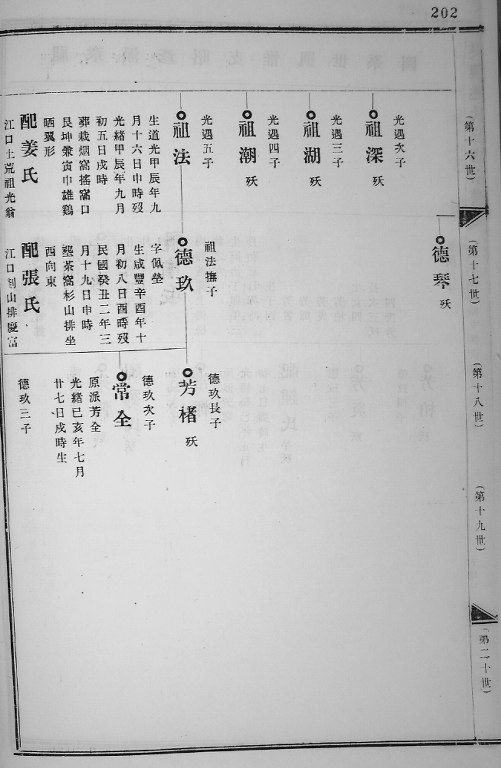 202
(第十六世)
(第十七世)
(第十八世)
(第十九世)
(第二十世)
德琴 殀
光遇次子
祖深 殀
光遇三子
祖湖 殀
光遇四子
祖潮 殀
光遇五子
祖法
生道光甲辰年九
月十六日申時歿
光緒甲辰年九月
初五日戌時
葬栽烟窩搖窩口
艮坤兼寅申雄鷄
晒翼形
配姜氏
江口土荒祖光翁
祖法撫子
德玖
字佩瑩
生咸豐辛酉年十
月初八日酉時歿
民國癸丑二年三
月十九日申時
塟茶窩杉山排坐
西向東
配張氏
江口刣山排慶富
德玖長子
芳楮 殀
德玖次子
常全
原派芳全
光緒己亥年七月
廿七日戌時生
德玖三子